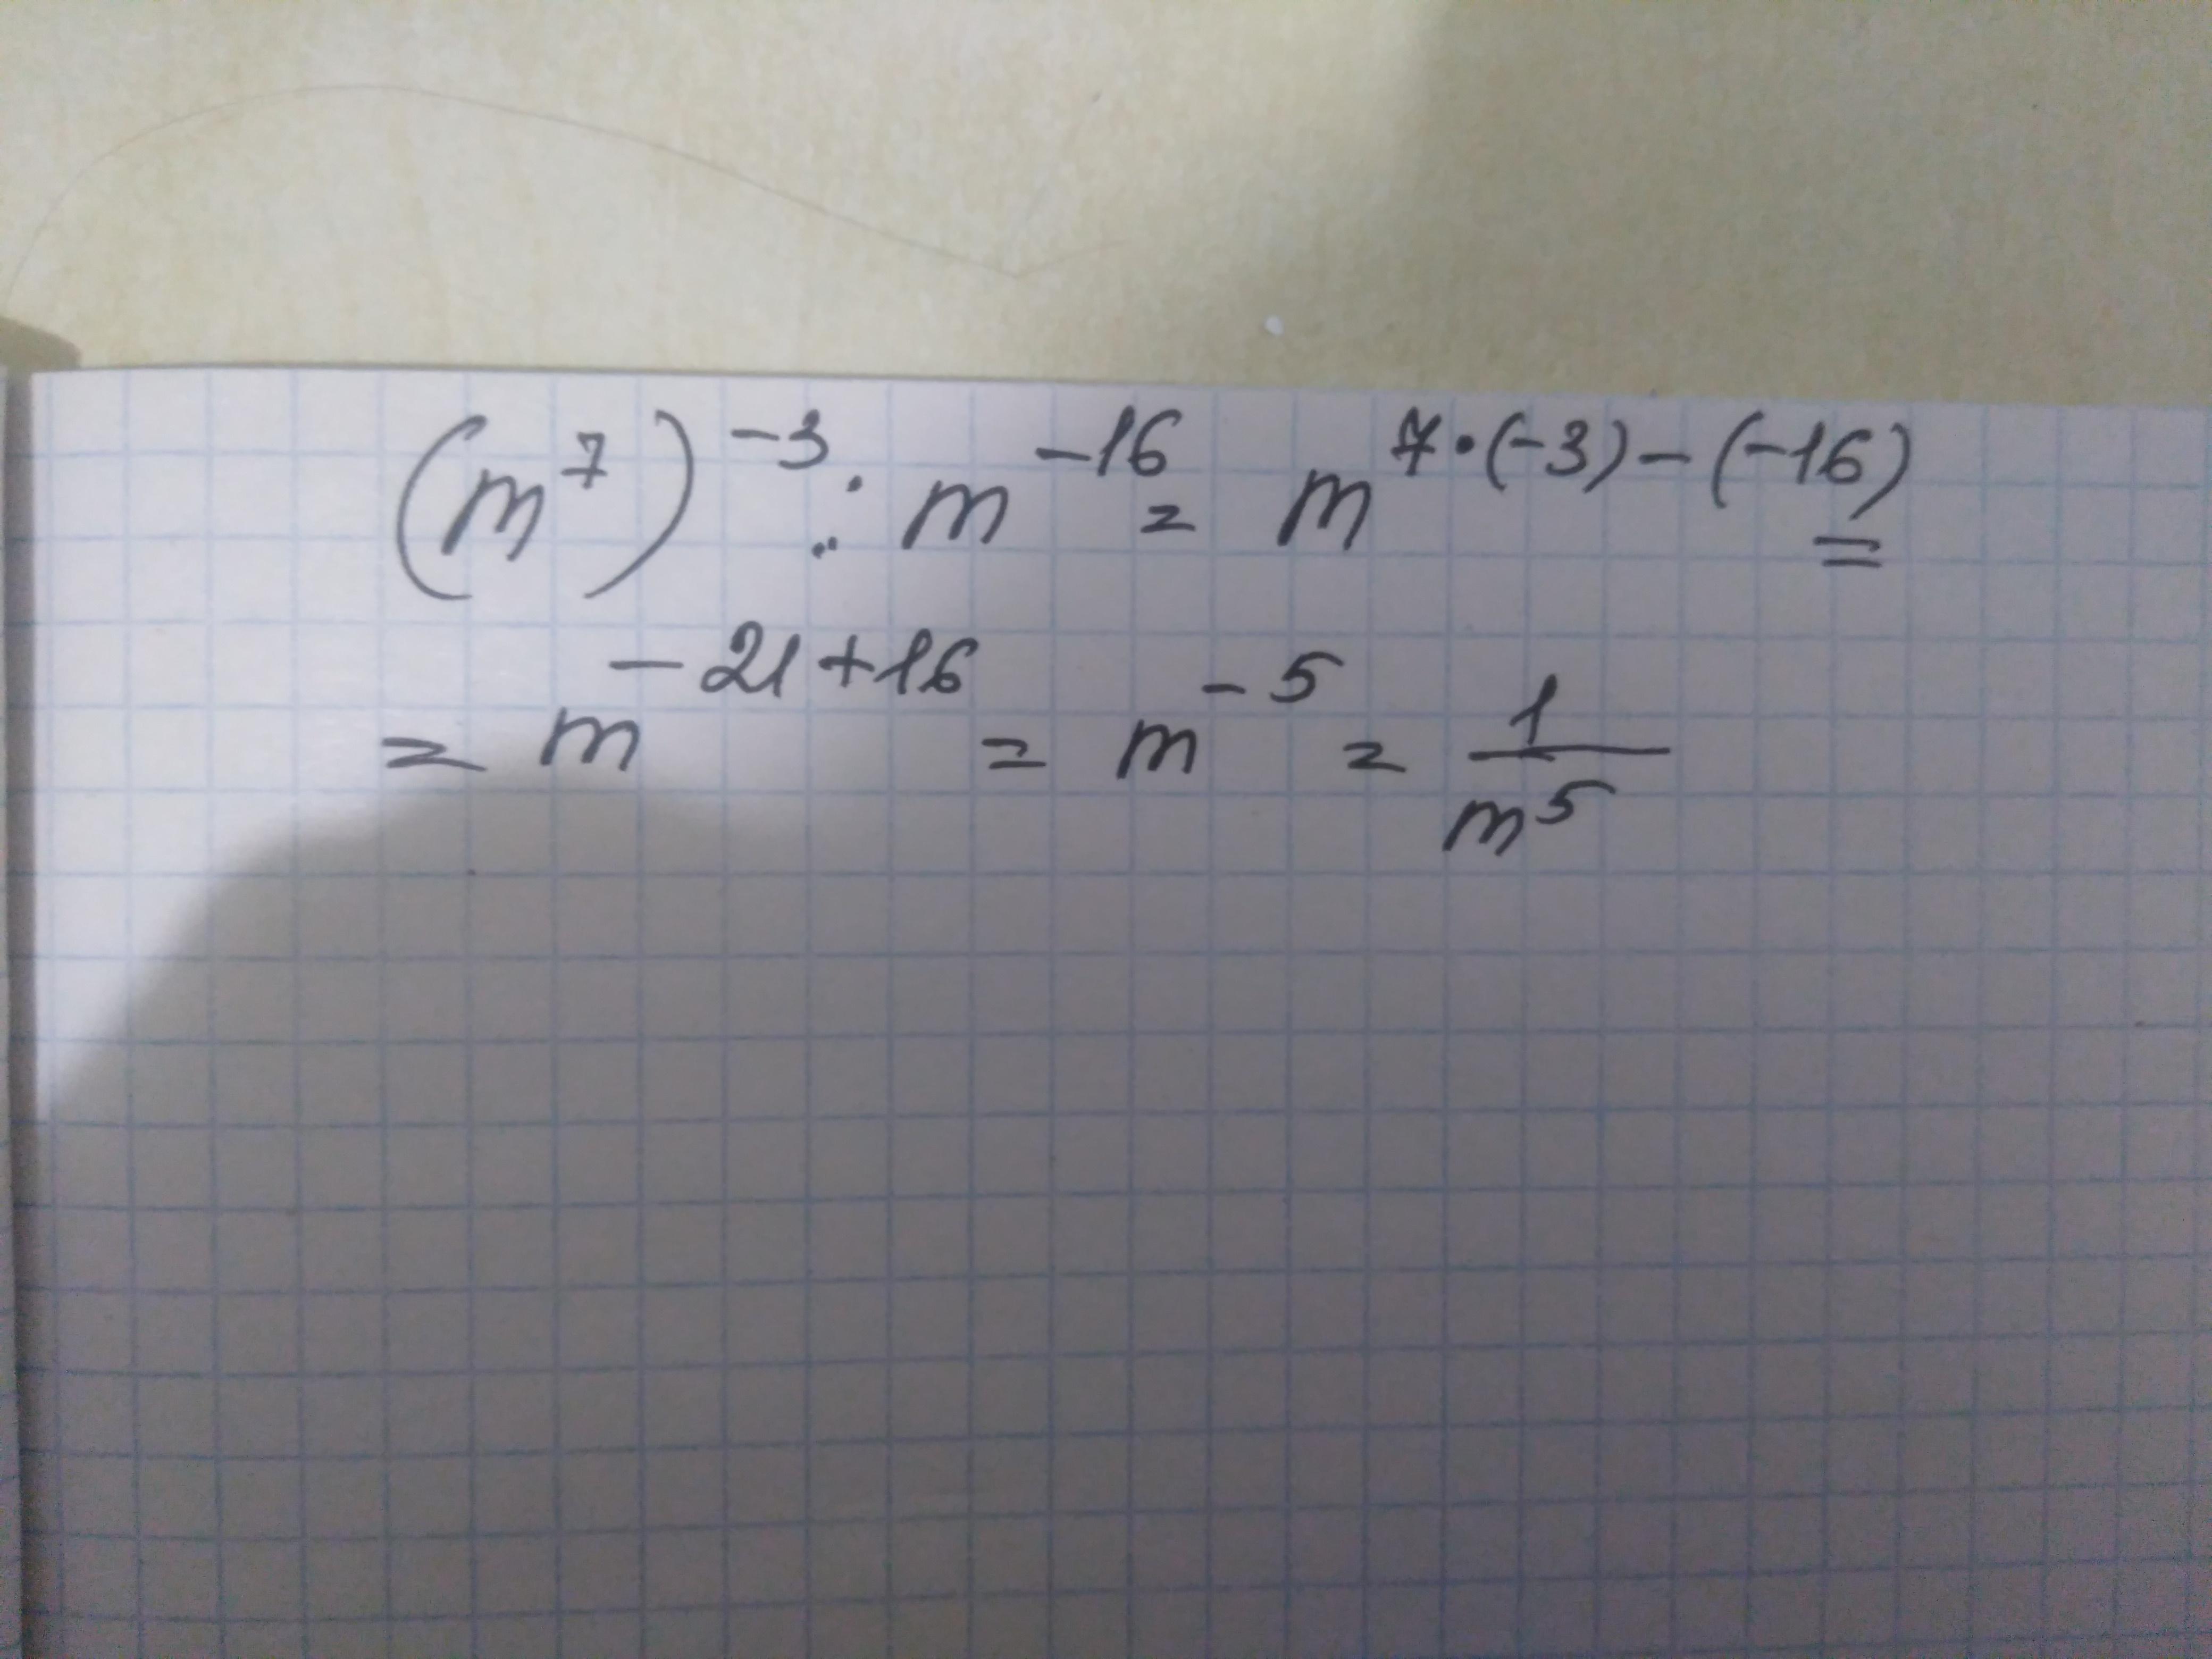 (m⁷)⁻³ : m⁻¹⁶ = m⁷·⁽⁻³⁾⁻⁽⁻¹⁶⁾ =
= m⁻²¹⁺¹⁶ = m⁻⁵ = 1/m⁵